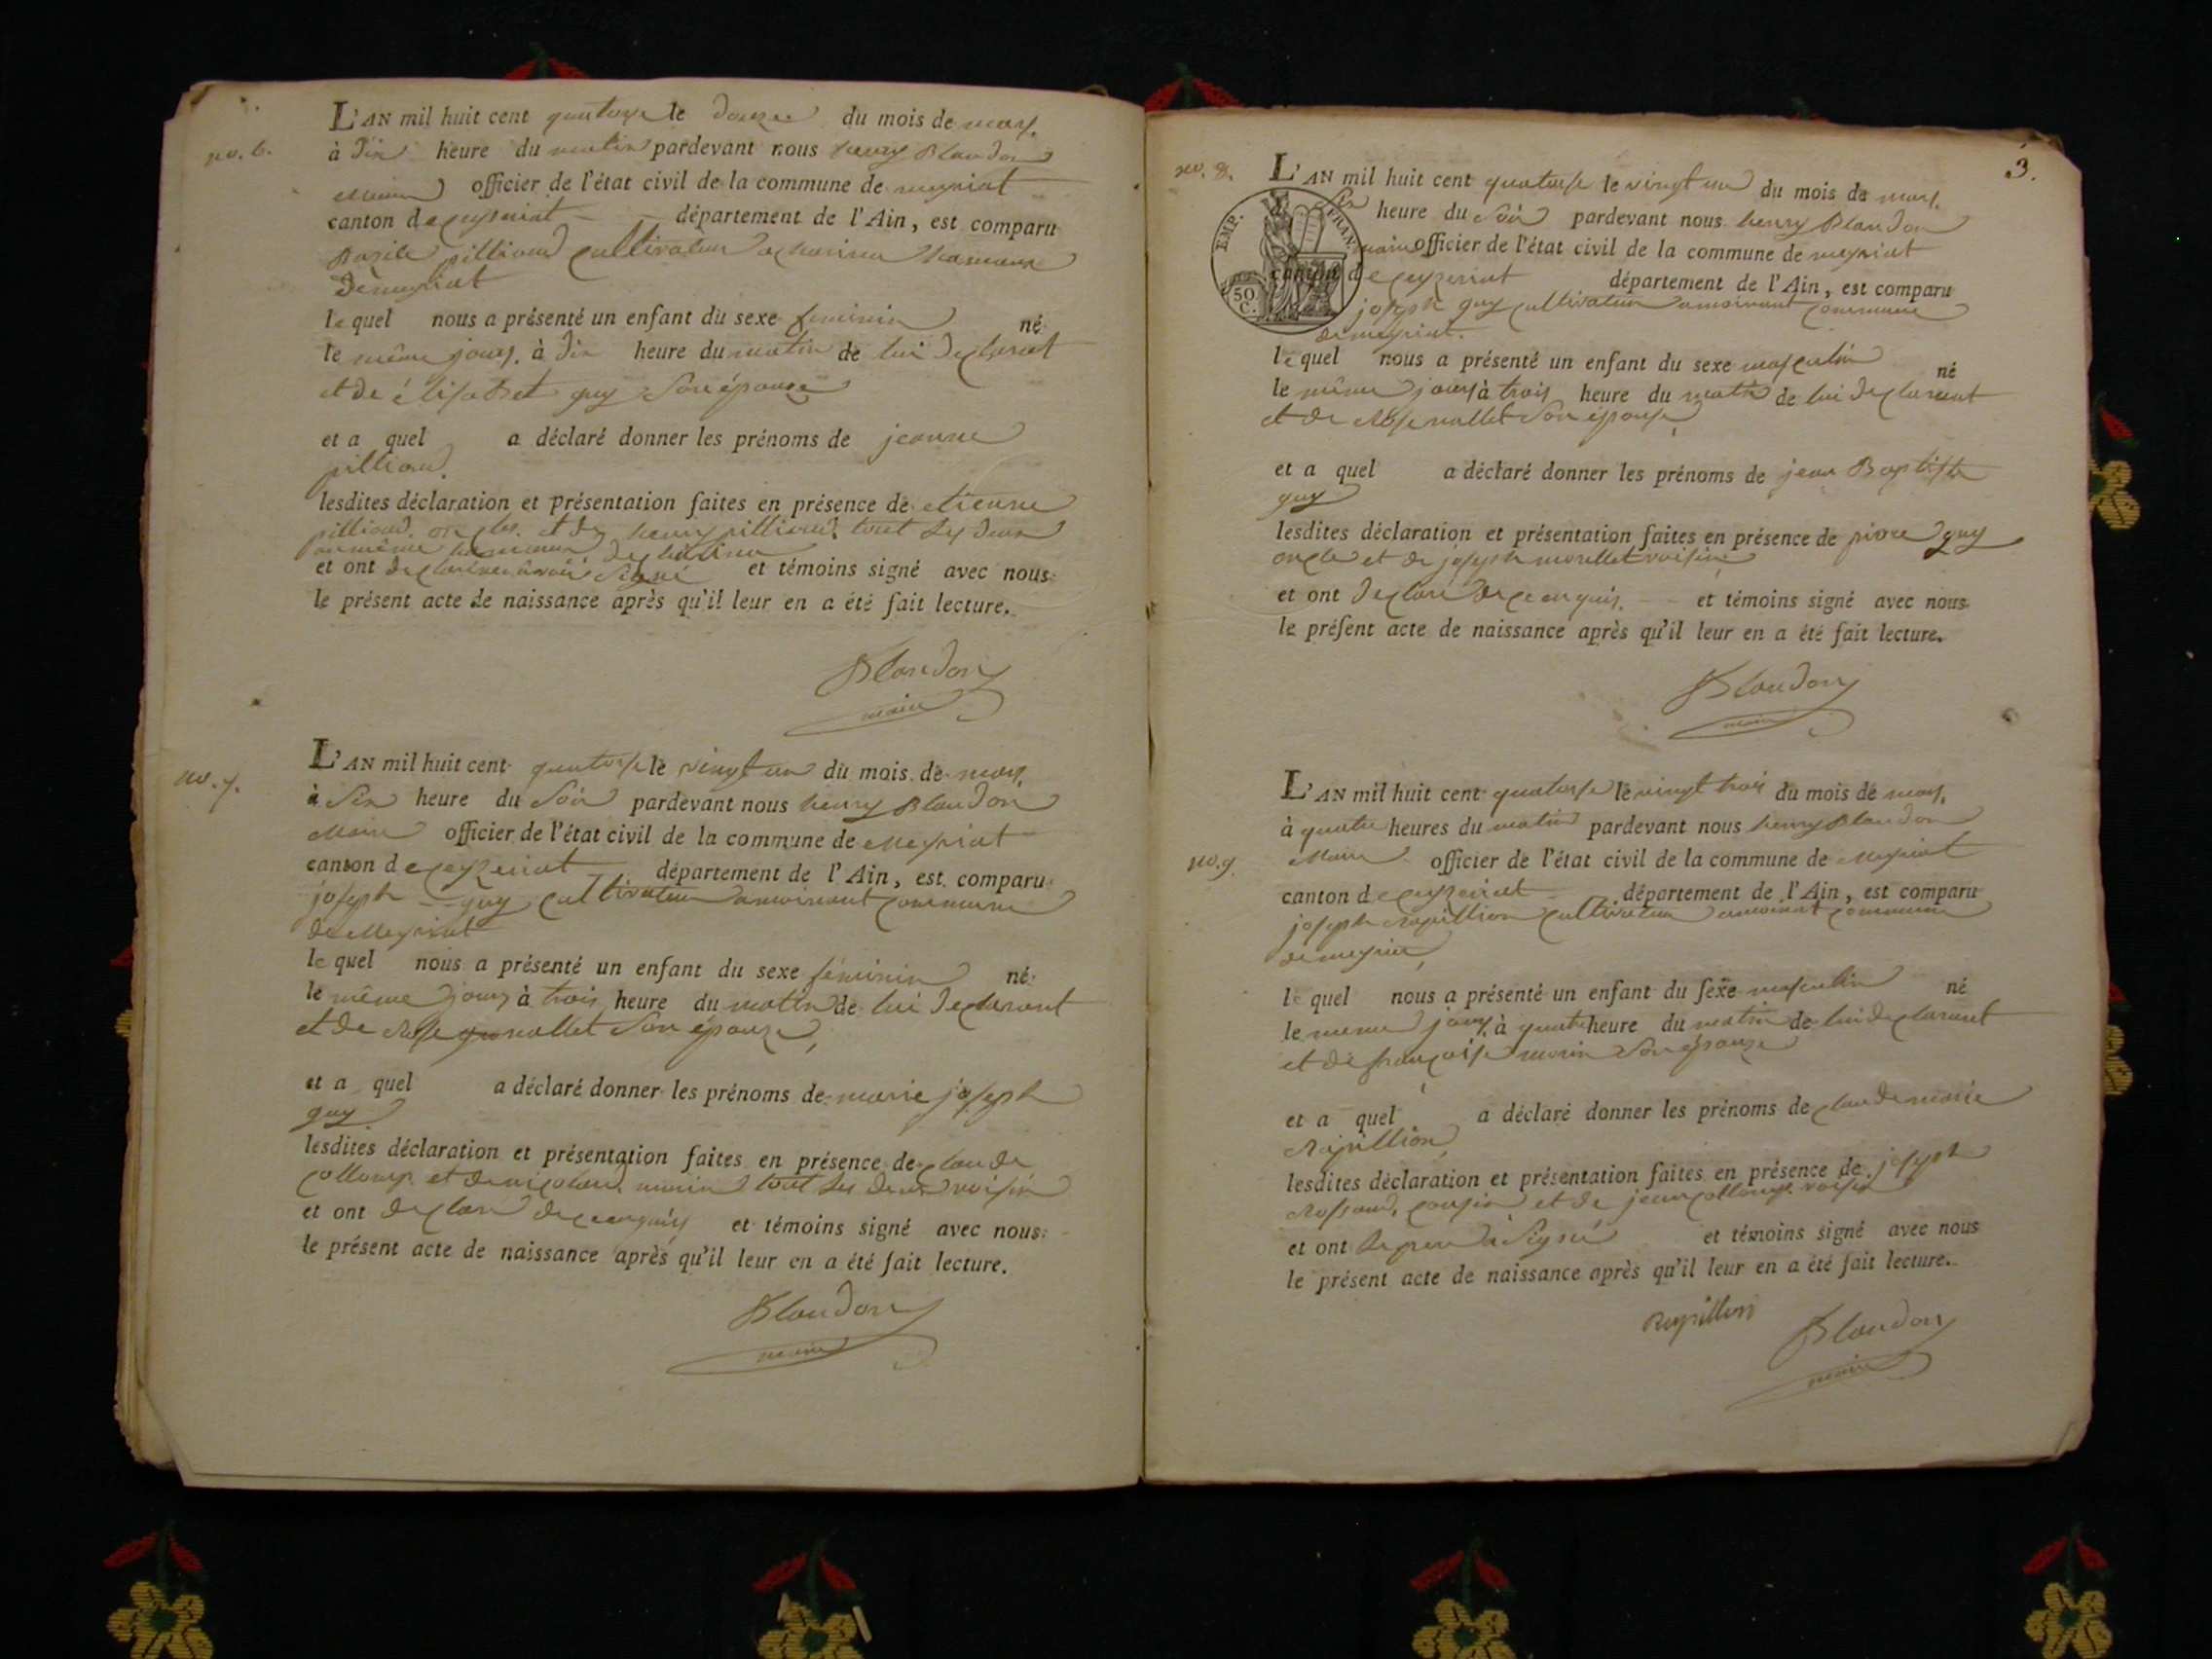 no. 6.
L'AN mil huit cent quatorze le douze du mois de mars.
à dix heure du matin pardevant nous henry Blandon
Maire officier de l'état civil de la commune de meyriat
canton de ceyzeriat département de l'Ain, est comparu
Bazile pillioud cultivateur a hameau
de meyriat
lequel nous a présenté un enfant du sexe feminin né
le même jours. à dix heure du matin de lui declarant
et de élisabet guy son épouze
et a quel a déclaré donner les prénoms de jeanne
pillioud.
lesdites déclaration et présentation faites en présence de etienne
pillioud. oncles. et de henry pillioud. tout les deux
au même hameau de
et ont signé et témoins signé avec nous
le présent acte de naissance après qu'il leur en a été fait lecture.
Blandon
maire
no. 7.
L'AN mil huit cent quatorse le vingt un du mois de mars.
à six heure du soir pardevant nous henry Blandon
Maire officier de l'état civil de la commune de Meyriat
canton de ceyzeriat département de l'Ain, est comparu
joseph guy cultivateur commune
de Meyriat
lequel nous a présenté un enfant du sexe féminin né
le même jours à trois heure du matin de lui declarant
et de Rose mollet son épouze,
et a quel a déclaré donner les prénoms de marie joseph
guy
lesdites déclaration et présentation faites en présence de claude
colloup et de morin tout les deux voisin
et ont declaré de ce enquis et témoins signé avec nous
le présent acte de naissance après qu'il leur en a été fait lecture.
Blandon
maire
3.
no. 8.
L'AN mil huit cent quatorse le vingt un du mois de mars.
à six heure du soir pardevant nous henry Blandon
maire officier de l'état civil de la commune de meyriat
canton de ceyzeriat département de l'Ain, est comparu
EMP. FRAN.
50 C.
joseph guy cultivateur commune
de meyriat.
lequel nous a présenté un enfant du sexe masculin né
le même jours à trois heure du matin de lui declarant
et de Rose mollet son épouse
et a quel a déclaré donner les prénoms de jean Baptiste
guy
lesdites déclaration et présentation faites en présence de pierre guy
oncle et de joseph morellet voisin
et ont declaré de ce enquis. et témoins signé avec nous
le présent acte de naissance après qu'il leur en a été fait lecture.
Blandon
maire
no. 9.
L'AN mil huit cent quatorse le vingt trois du mois de mars.
à quatre heures du matin pardevant nous henry Blandon
Maire officier de l'état civil de la commune de Meyriat
canton de ceyzeriat département de l'Ain, est comparu
joseph Rapillion cultivateur commune
de meyriat,
lequel nous a présenté un enfant du sexe masculin né
le meme jours. à quatre heure du matin de lui declarant
et de françoise morin son épouze
et a quel a déclaré donner les prénoms de claude marie
Rapillion,
lesdites déclaration et présentation faites en présence de joseph
cousin et de jean colloup. voisin
et ont signé et témoins signé avec nous
le présent acte de naissance après qu'il leur en a été fait lecture.
Rapillion
Blandon
maire